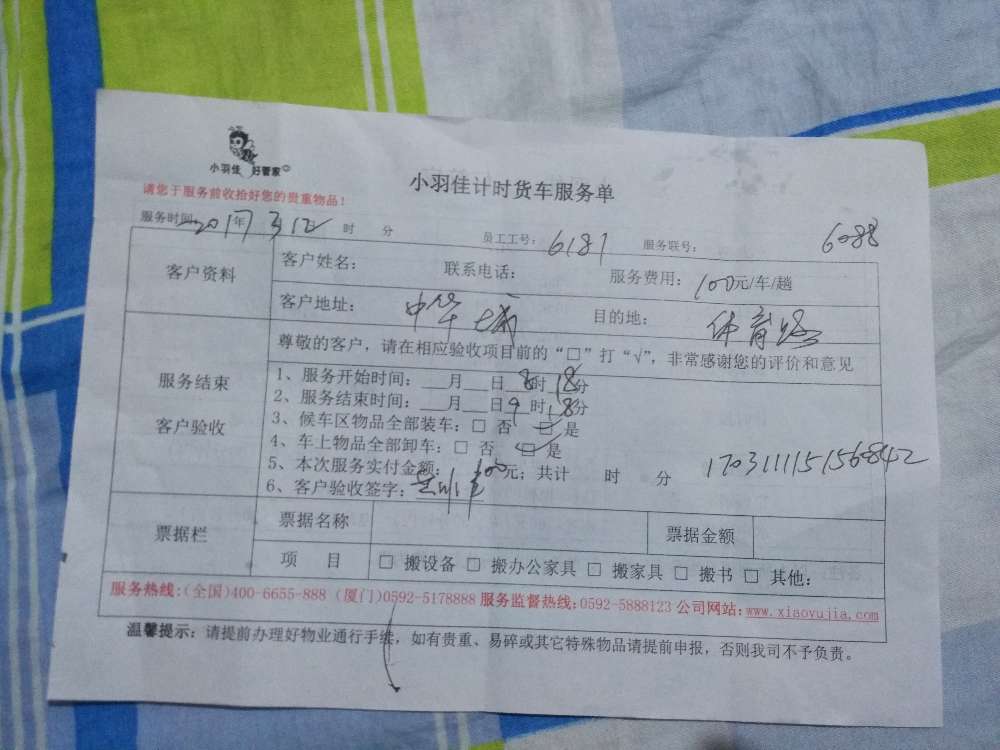 小羽佳 好管家
小羽佳计时货车服务单
请您于服务前收拾好您的贵重物品！
服务时间： 2017年 3 12 时 分 员工工号： 6181 服务联号： 6088
客户资料
客户姓名： 联系电话： 服务费用： 100元/车/趟
客户地址： 中华城 目的地： 体育路
服务结束
客户验收
尊敬的客户，请在相应验收项目前的“□”打“√”，非常感谢您的评价和意见
1、服务开始时间：___月___日 8时18分
2、服务结束时间：___月___日 9时18分
3、候车区物品全部装车：□ 否 ☑ 是
4、车上物品全部卸车：□ 否 ☑ 是
5、本次服务实付金额： 100元；共计 时 分
6、客户验收签字：
170311115156842
票据栏
票据名称 票据金额
项 目 □ 搬设备 □ 搬办公家具 □ 搬家具 □ 搬书 □ 其他：
服务热线：(全国)400-6655-888 (厦门)0592-5178888 服务监督热线：0592-5888123 公司网站：www.xiaoyujia.com
温馨提示：请提前办理好物业通行手续，如有贵重、易碎或其它特殊物品请提前申报，否则我司不予负责。